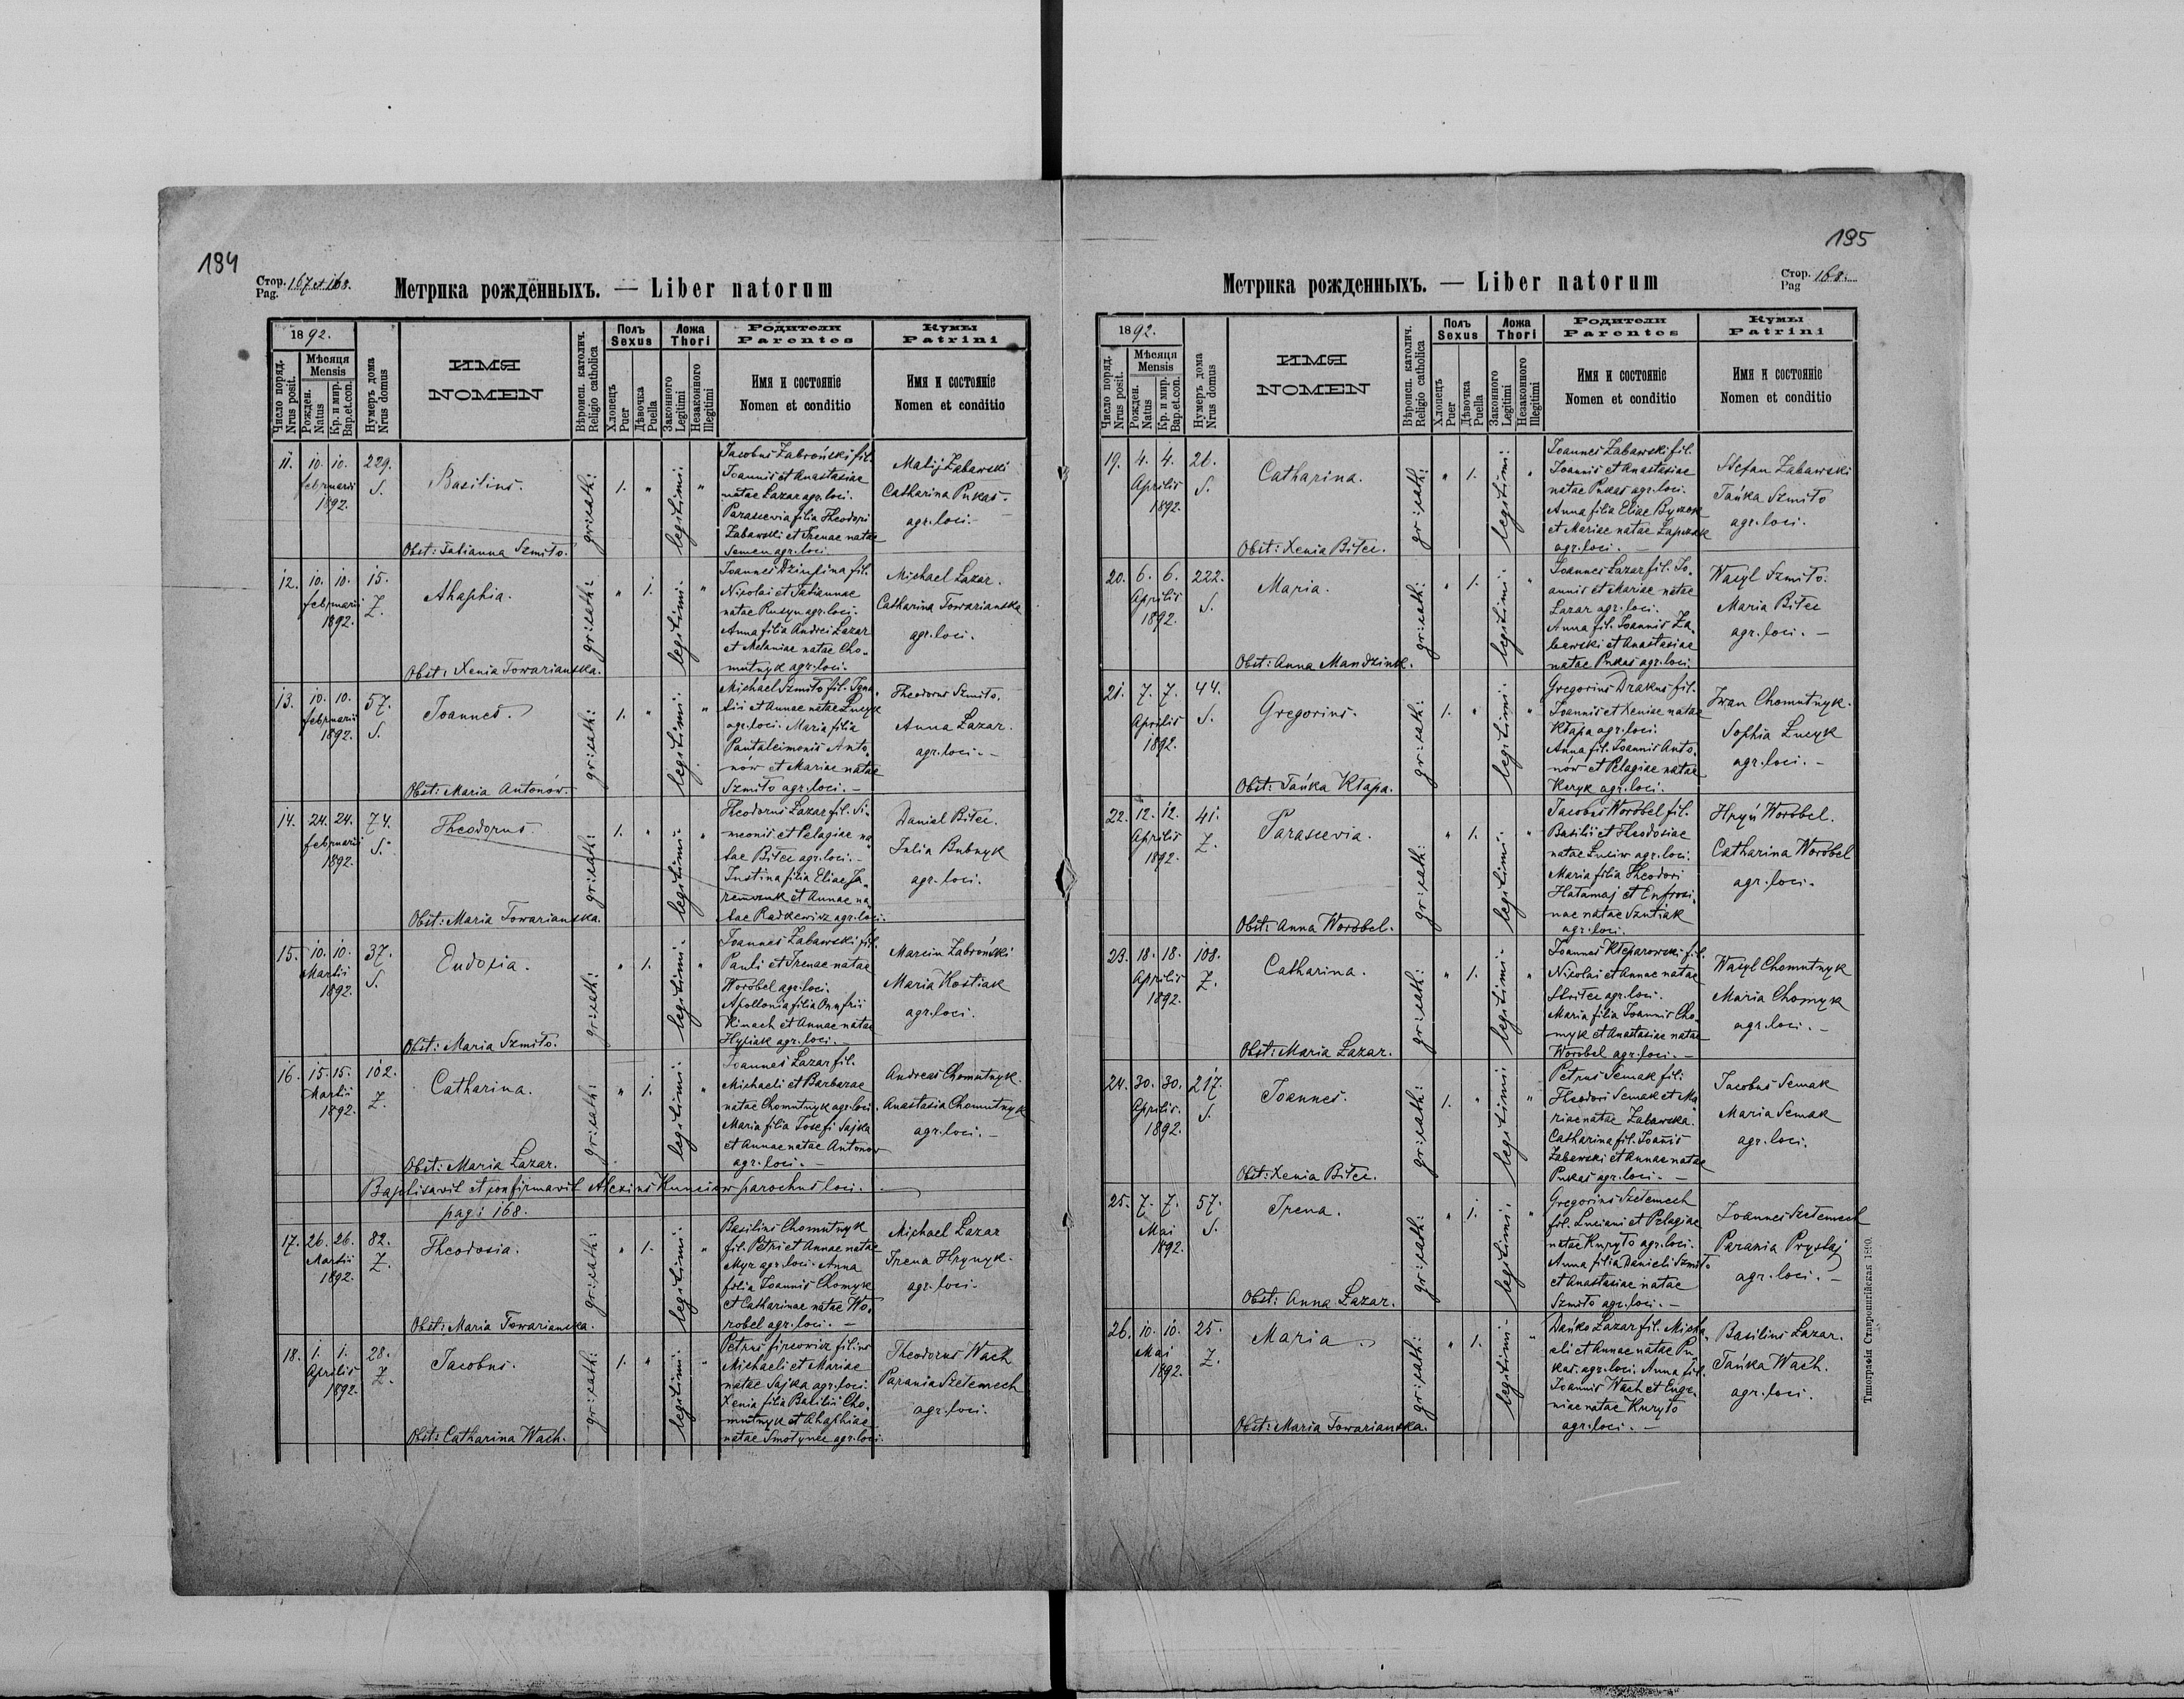 194
Стор. 167 et 168.
Pag.
Метрика рождённыхъ. — Liber natorum
1892.
Число поряд.
Nrus posit.
Мѣсяця
Mensis
Рожден.
Natus
Кр. и мир.
Bap. et. con.
Нумеръ дома
Nrus domus
ИМЯ
NOMEN
Вѣроисп. католич.
Religio catholica
Полъ
Sexus
Хлопецъ
Puer
Дѣвочка
Puella
Ложа
Thori
Законного
Legitimi
Незаконного
Illegitimi
Родители
Parentes
Имя и состоянiе
Nomen et conditio
Кумы
Patrini
Имя и состоянiе
Nomen et conditio
11. 10. 10. 229.
februarii S.
1892.
Basilius.
Obst: Tatianna Szmiło.
gr: cath:
1. "
legitimi: "
Jacobus Zabroński fil.
Joannis et Anastasiae
natae Lazar agr. loci.
Parascevia filia Theodori
Zabawski et Irenae natae
Semen agr. loci
Matij Zabawski
Catharina Pukas
agr. loci. —
12. 10. 10. 15.
februarii Z.
1892.
Ahaphia.
Obst: Xenia Towarianska.
gr: cath:
" 1.
legitimi: "
Joannes Dzindzina fil.
Nicolai et Tatiannae
natae Rusyn agr. loci.
Anna filia Andrei Lazar
et Melaniae natae Cho„
mutnyk agr. loci.
Michael Lazar.
Catharina Towarianska
agr. loci.
13. 10. 10. 57.
februarii S.
1892.
Joannes.
Obst: Maria Antonów.
gr: cath:
1. "
legitimi: "
Michael Szmiło fil. Igna„
tii et Annae natae Lucyk
agr. loci. Maria filia
Pantaleimonis Anto„
nów et Mariae natae
Szmiło agr. loci. —
Theodorus Szmiło.
Anna Lazar.
agr. loci. —
14. 24. 24. 74.
februarii S.
1892.
Theodorus.
Obst: Maria Towarianska.
gr: cath:
1. "
legitimi: "
Theodorus Lazar fil. Si„
meonis et Pelagiae na„
tae Biłec agr. loci. —
Justina filia Eliae Ja„
remczuk et Annae na„
tae Radkewicz agr. loci.
Daniel Biłec.
Julia Bubnyk
agr. loci.
15. 10. 10. 37.
Martii S.
1892.
Eudoxia.
Obst: Maria Szmiło.
gr: cath:
" 1.
legitimi: "
Joannes Zabawski fil.
Pauli et Irenae natae
Worobel agr. loci.
Apollonia filia Onufrii
Kinach et Annae natae
Hyliak agr. loci. —
Marcin Zabroński
Maria Kostiak
agr. loci.
16. 15. 15. 102.
Martii Z.
1892.
Catharina.
Obst: Maria Lazar.
gr: cath:
" 1.
legitimi: "
Joannes Lazar fil.
Michaeli et Barbarae
natae Chomutnyk agr. loci.
Maria filia Josefi Sajka
et Annae natae Antonow
agr. loci. —
Andreas Chomutnyk.
Anastasia Chomutnyk
agr. loci. —
Baptisavit et confirmavit Alexius Kunciów parochus loci. —
pag: 168.
17. 26. 26. 82.
Martii Z.
1892.
Theodosia.
Obst: Maria Towarianska.
gr: cath:
" 1.
legitimi: "
Basilius Chomutnyk
fil. Petri et Annae natae
Myr agr. loci. Anna
filia Joannis Chomyk
et Catharinae natae Wo„
robel agr. loci. —
Michael Lazar
Irena Hrynyk.
agr. loci.
18. 1. 1. 28.
Aprilis Z.
1892.
Jacobus.
Obst: Catharina Wach.
gr: cath:
1. "
legitimi: "
Petrus fircowicz filius
Michaeli et Mariae
natae Sajka agr. loci.
Xenia filia Basilii Cho„
mutnyk et Ahaphiae
natae Smotynec agr. loci.
Theodorus Wach
Parania Szełemech
agr. loci.
195
Стор. 168.
Pag
Метрика рожденныхъ. — Liber natorum
1892.
Число поряд.
Nrus posit.
Мѣсяця
Mensis
Рожден.
Natus
Кр. и мир.
Bap. et. con.
Нумеръ дома
Nrus domus
ИМЯ
NOMEN
Вѣроисп. католич.
Religio catholica
Полъ
Sexus
Хлопецъ
Puer
Дѣвочка
Puella
Ложа
Thori
Законного
Legitimi
Незаконного
Illegitimi
Родители
Parentes
Имя и состоянiе
Nomen et conditio
Кумы
Patrini
Имя и состоянiе
Nomen et conditio
19. 4. 4. 21.
Aprilis S.
1892.
Catharina.
Obst: Xenia Biłec.
gr: cath:
" 1.
legitimi: "
Joannes Zabawski fil.
Joannis et Anastasiae
natae Pukas agr. loci.
Anna filia Eliae Byczok
et Mariae natae Lapczak
agr. loci. —
Stefan Zabawski
Tańka Szmiło
agr. loci.
20. 6. 6. 222.
Aprilis S.
1892.
Maria.
Obst: Anna Mandziuk.
gr: cath:
" 1.
legitimi: "
Joannes Lazar fil. Jo„
annis et Mariae natae
Lazar agr. loci.
Anna fil. Joannis Za„
bawski et Anastasiae
natae Pukas agr. loci.
Wasyl Szmiło.
Maria Biłec
agr. loci. —
21. 7. 7. 44.
Aprilis S.
1892.
Gregorius.
Obst: Tańka Kłapa.
gr: cath:
1. "
legitimi: "
Gregorius Drakus fil.
Joannis et Xeniae natae
Kłapa agr. loci.
Anna fil. Joannis Anto„
nów et Pelagiae natae
Keryk agr. loci.
Iwan Chomutnyk.
Sophia Lucyk
agr. loci. —
22. 12. 12. 41.
Aprilis Z.
1892.
Parascevia.
Obst: Anna Worobel.
gr: cath:
" 1.
legitimi: "
Jacobus Worobel fil.
Basilii et Theodosiae
natae Luciw agr. loci.
Maria filia Theodori
Hatamaj et Enfrosi„
nae natae Szutiak
agr. loci.
Hryń Worobel.
Catharina Worobel
agr. loci.
23. 18. 18. 108.
Aprilis Z.
1892.
Catharina.
Obst: Maria Lazar.
gr: cath:
" 1.
legitimi: "
Joannes Kleparowski fil.
Nicolai et Annae natae
agr. loci.
Maria filia Joannis Cho„
myk et Anastasiae natae
Worobel agr. loci. —
Wasyl Chomutnyk
Maria Chomyk
agr. loci. —
24. 30. 30. 217.
Aprilis S.
1892.
Joannes.
Obst: Xenia Biłec.
gr: cath:
1. "
legitimi: "
Petrus Semak fil:
Theodori Semak et Ma
riae natae Zabawska.
Catharina fil. Joanis
Zabawski et Annae natae
Pukas agr. loci. —
Jacobus Semak
Maria Semak
agr. loci.
25. 7. 7. 57.
Mai S.
1892.
Irena.
Obst: Anna Lazar.
gr: cath:
" 1.
legitimi: "
Gregorius Szełemech
fil. Luciani et Pelagiae
natae Kuryło agr. loci.
Anna filia Danieli Szmiło
et Anastasiae natae
Szmiło agr. loci. —
Joannes Szełemech
Parania Prystaj
agr. loci. —
26. 10. 10. 25.
Mai Z.
1892.
Maria.
Obst: Maria Towarianska.
gr: cath:
" 1.
legitimi: "
Dańko Lazar fil. Micha„
eli et Annae natae Pu
kas. agr. loci. Anna fil.
Joannis Wach et Euge„
niae natae Kuryło
agr. loci. —
Basilius Lazar.
Tańka Wach.
agr. loci.
Типографія Ставропигійская 1890.